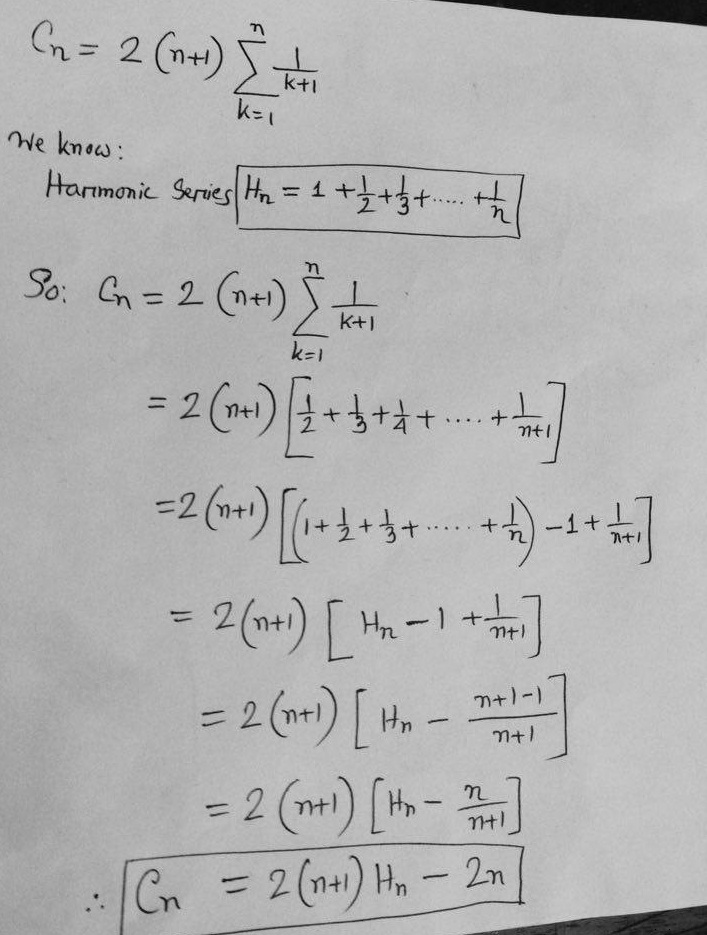 Cn = 2 (n+1) ∑_{k=1}^{n} 1/(k+1)
We know:
Harmonic Series Hn = 1 + 1/2 + 1/3 + ..... + 1/n
So: Cn = 2 (n+1) ∑_{k=1}^{n} 1/(k+1)
= 2 (n+1) [1/2 + 1/3 + 1/4 + .... + 1/(n+1)]
= 2 (n+1) [(1 + 1/2 + 1/3 + ..... + 1/n) - 1 + 1/(n+1)]
= 2 (n+1) [Hn - 1 + 1/(n+1)]
= 2 (n+1) [Hn - (n+1-1)/(n+1)]
= 2 (n+1) [Hn - n/(n+1)]
∴ Cn = 2 (n+1) Hn - 2n